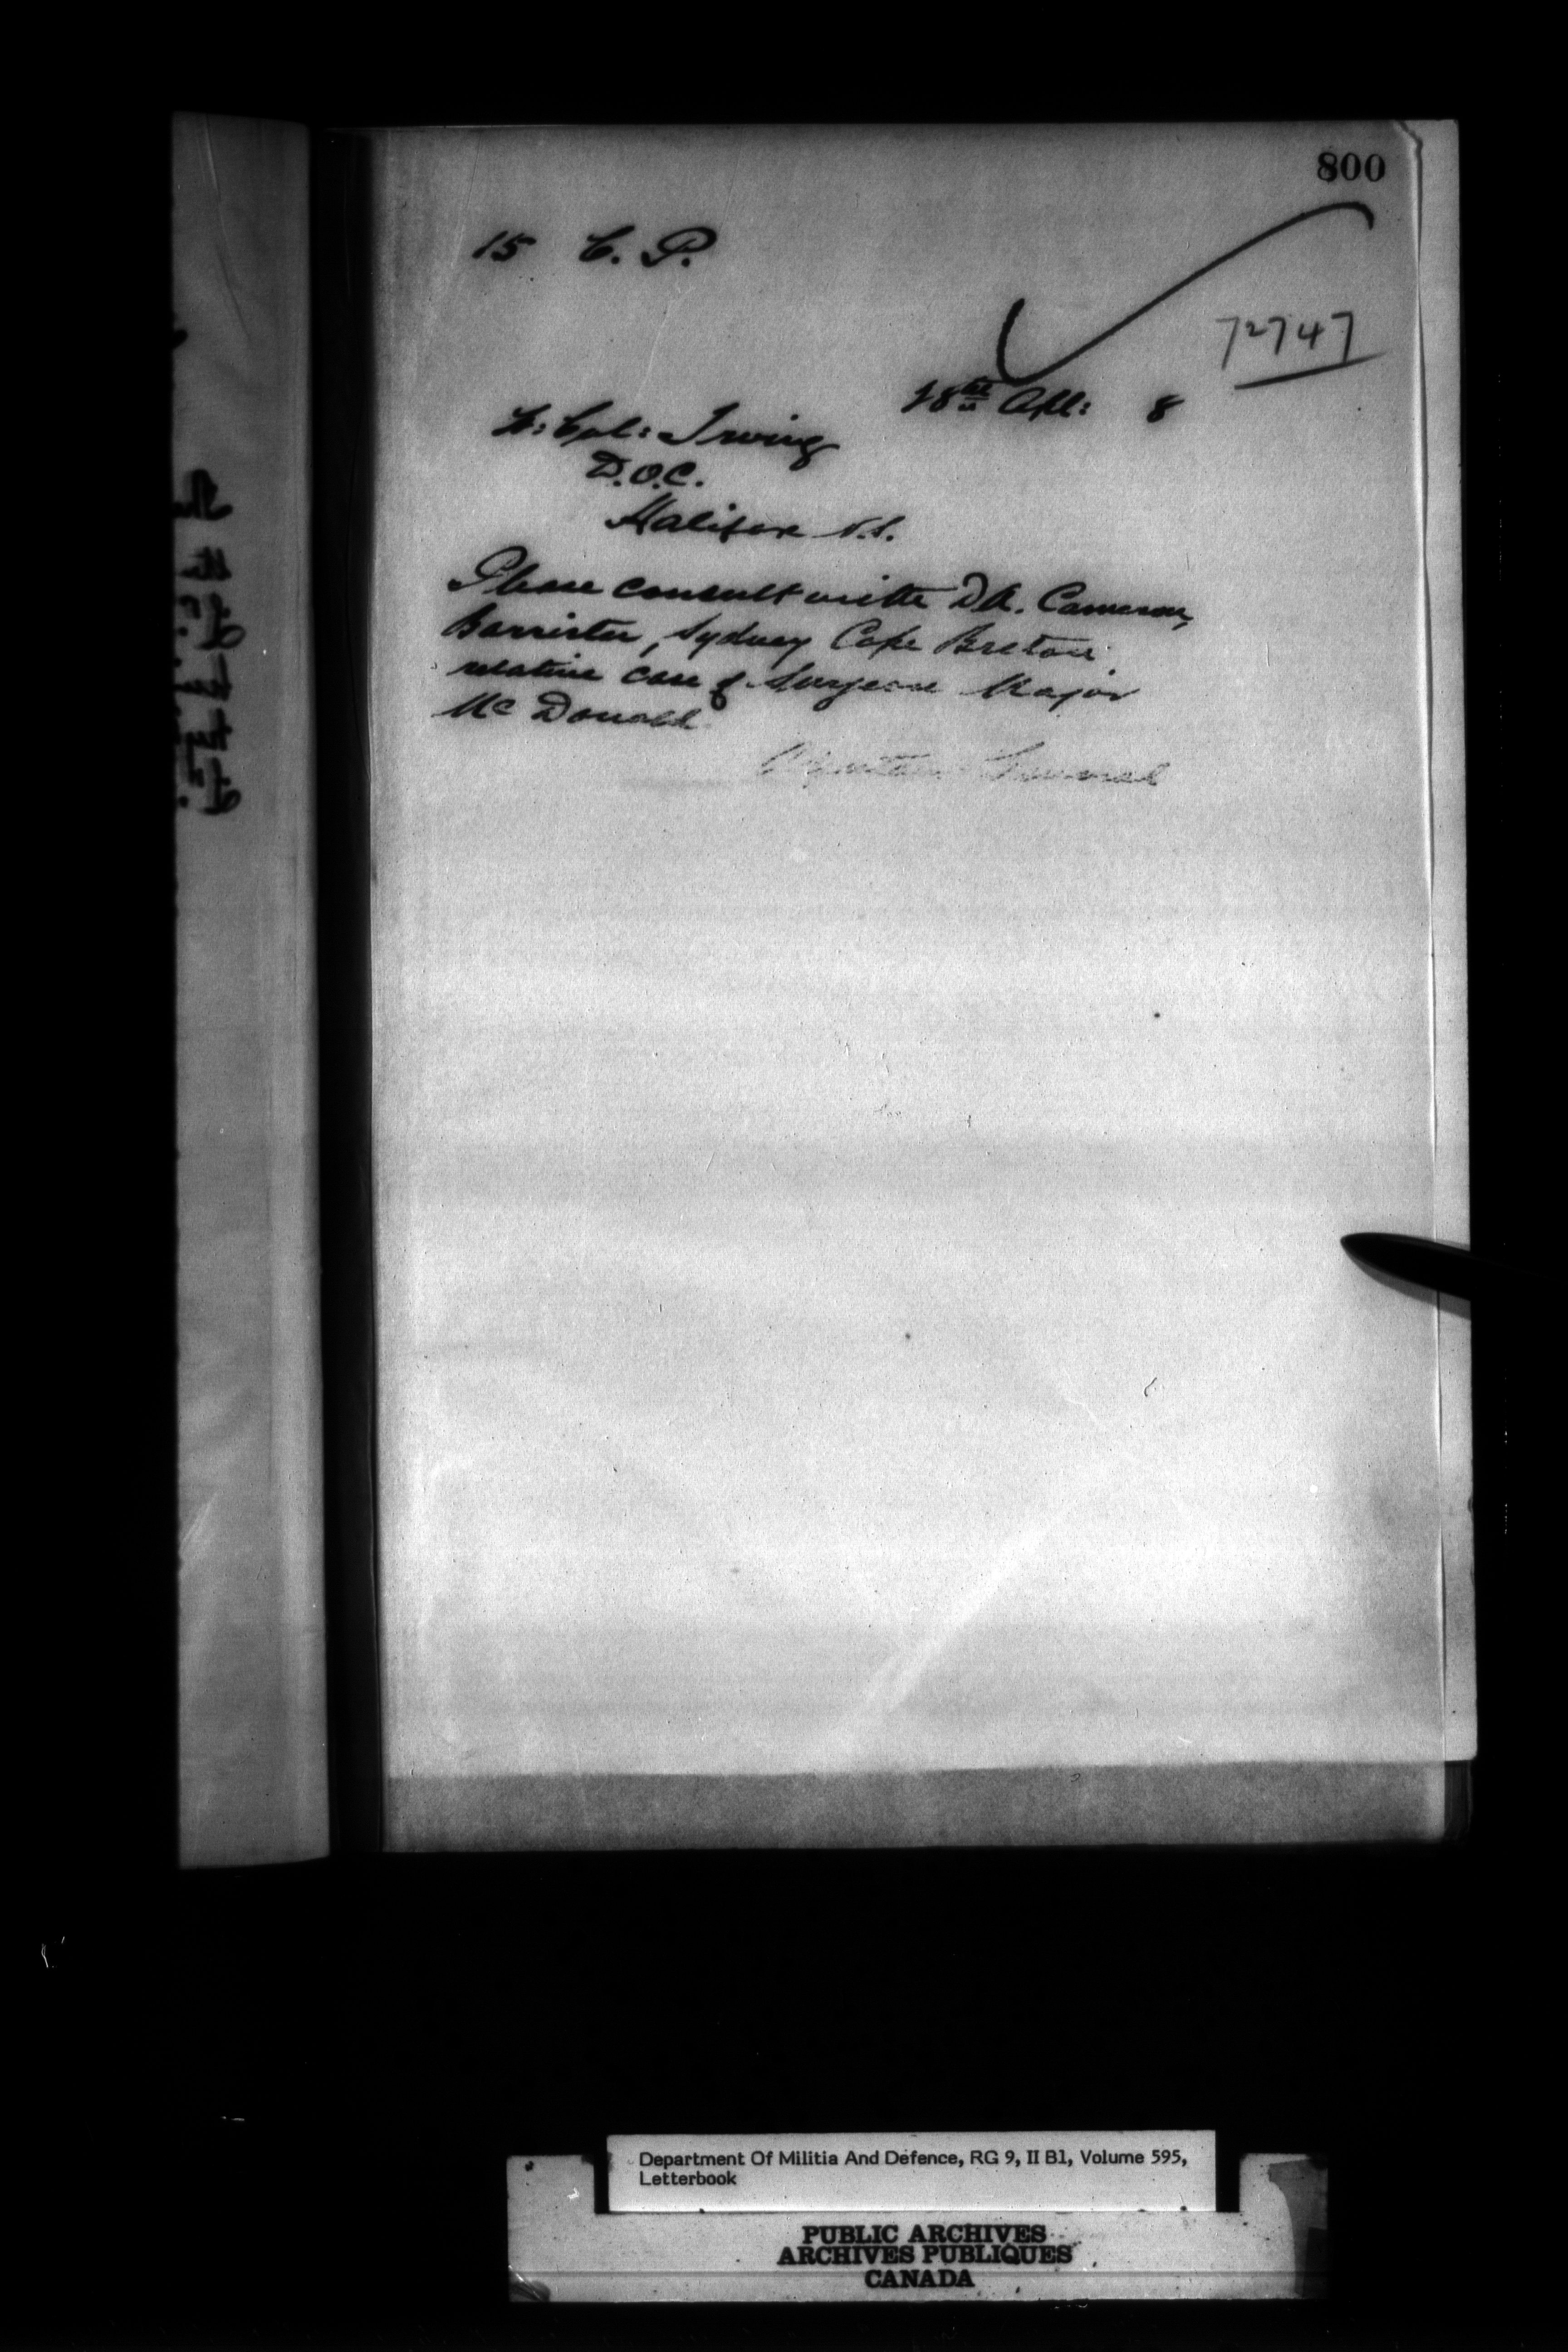 800
15 C. P.
72747
18th Apl: 8
Lt: Col: Irving
D.O.C.
Halifax N.S.
Please consult with D.A. Cameron,
Barrister, Sydney Cape Breton
relative case of Surgeon Major
Mc Donald
Adjutant General
Department Of Militia And Defence, RG 9, II B1, Volume 595,
Letterbook
PUBLIC ARCHIVES
ARCHIVES PUBLIQUES
CANADA